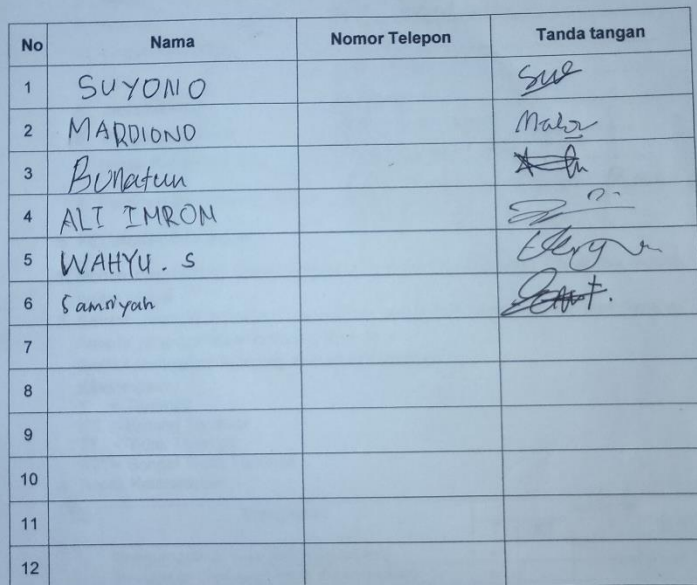 No Nama Nomor Telepon Tanda tangan
1 SUYONO
2 MARDIONO
3 Bunatun
4 ALI IMRON
5 WAHYU . S
6 Samriyah
7
8
9
10
11
12